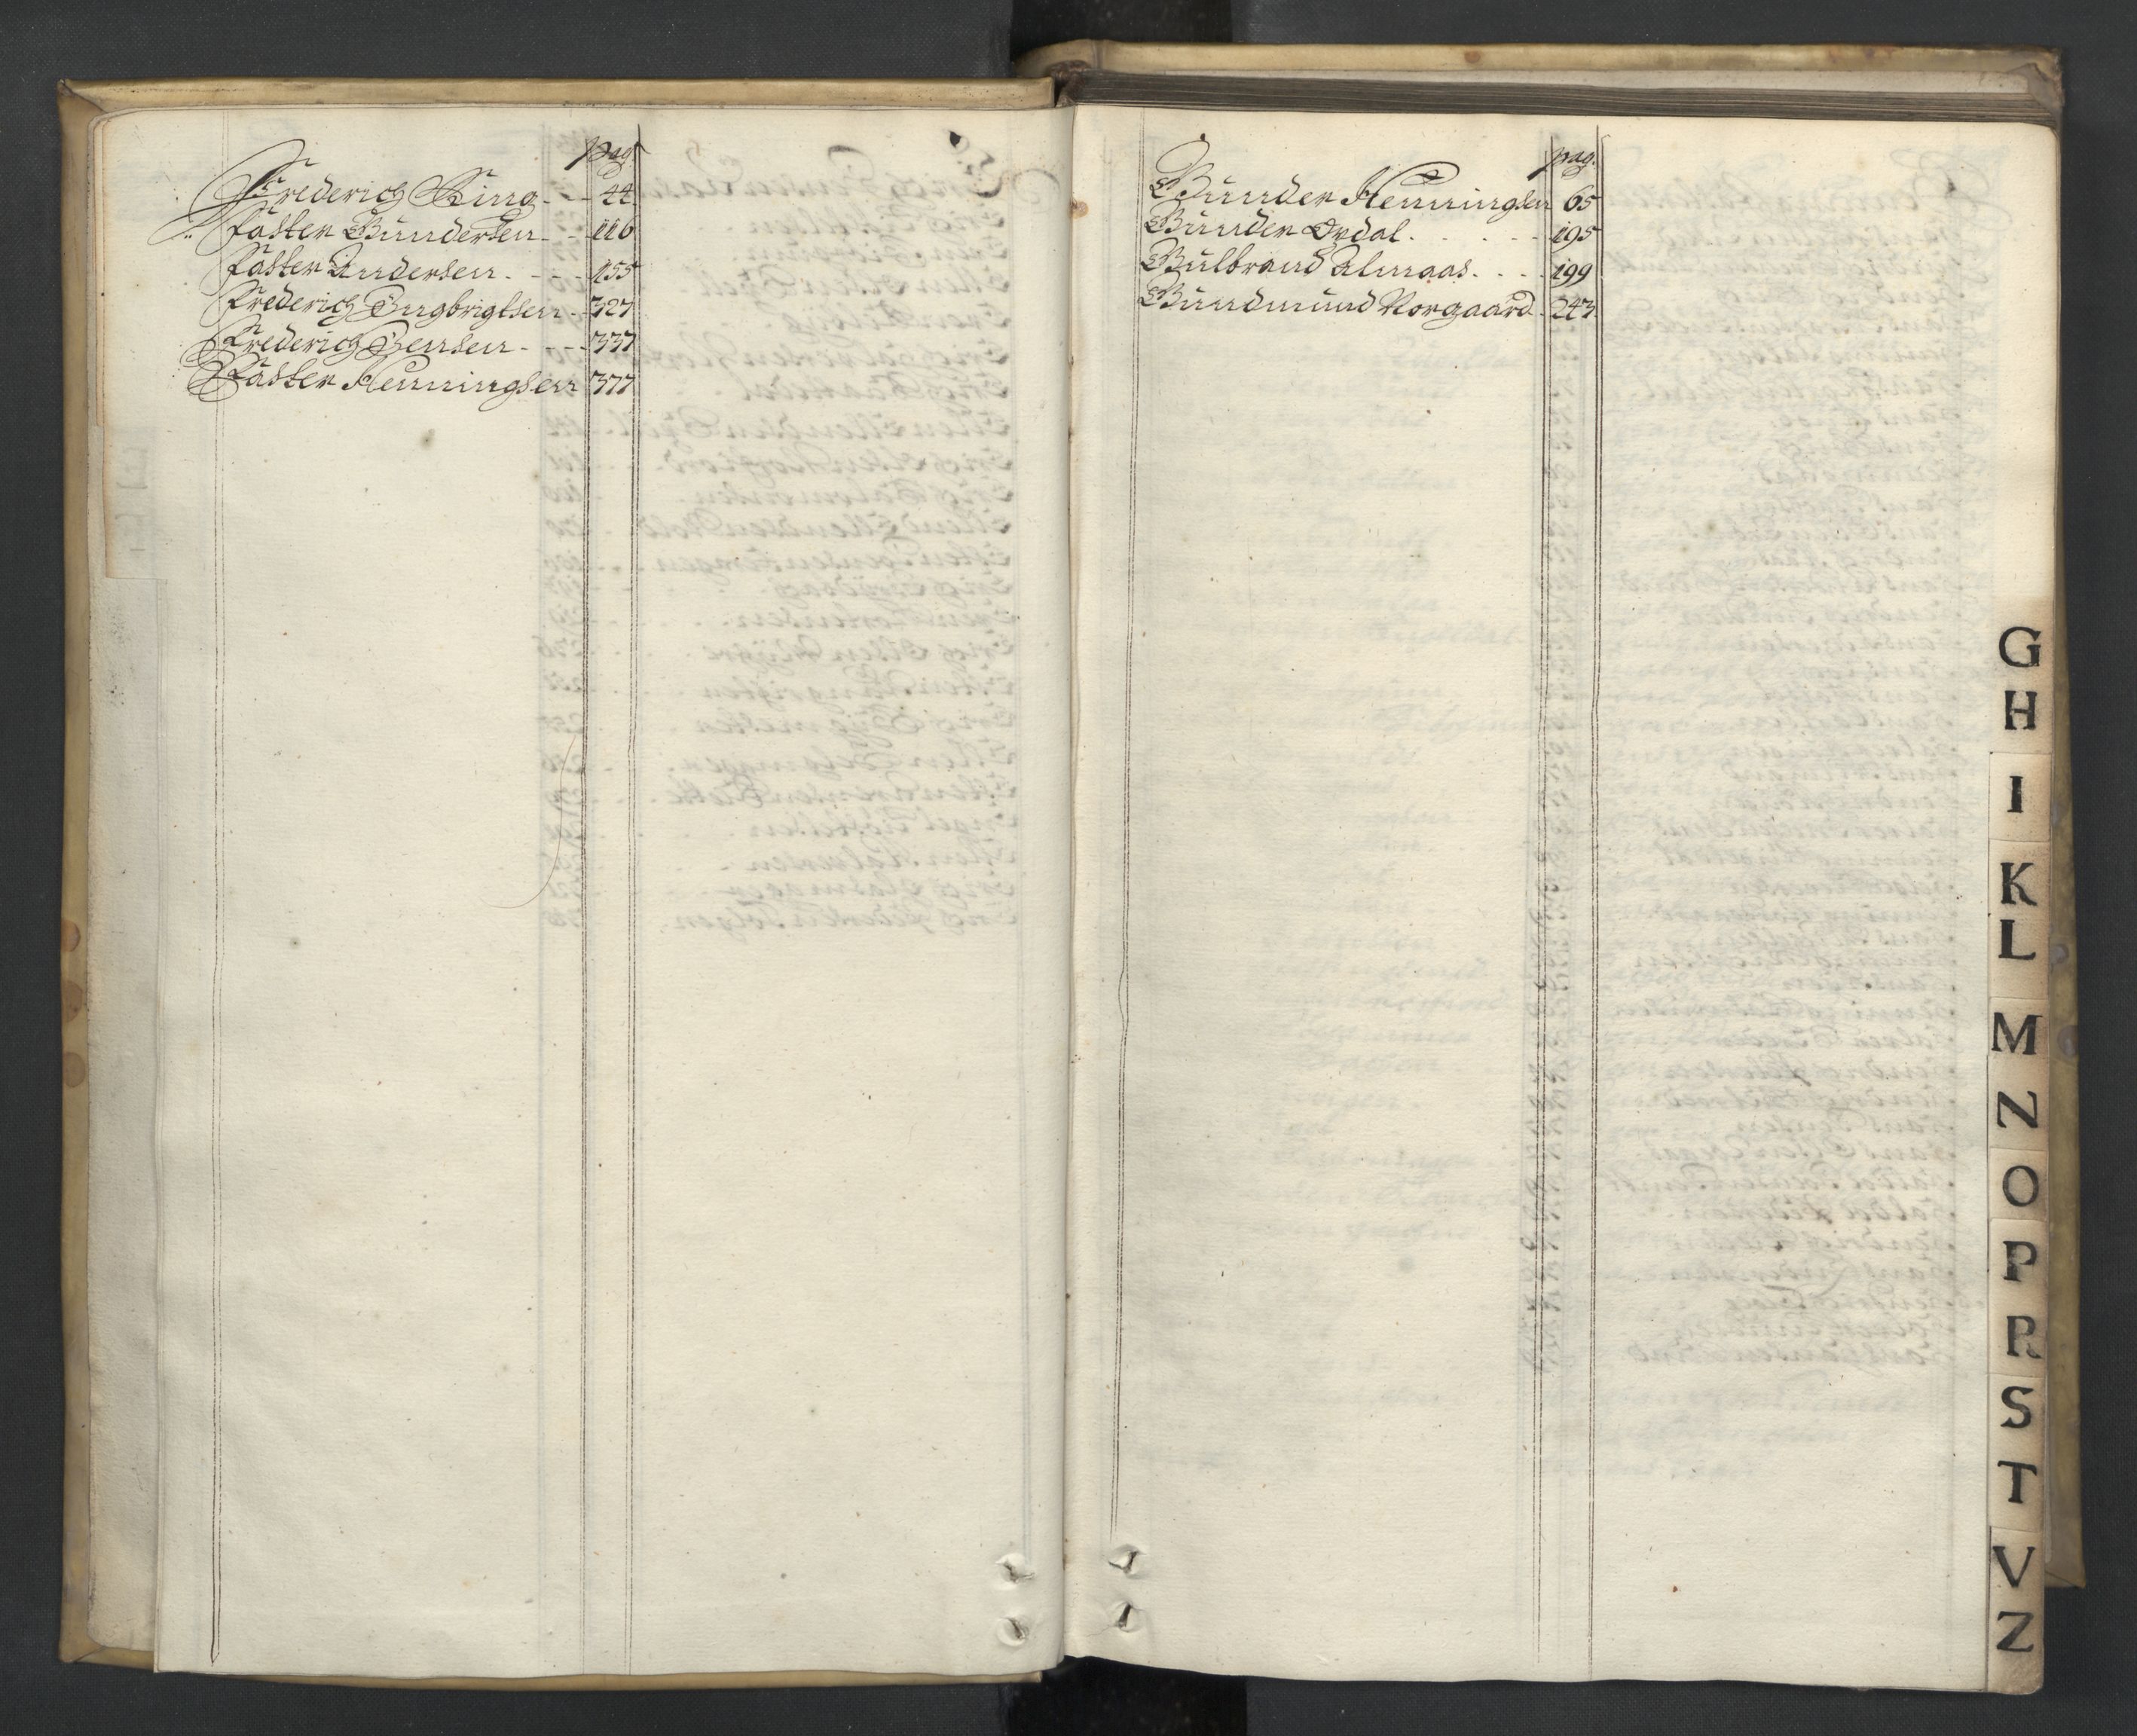 pag.
Frederich Ring - - 44
Faster Gundersen - - 116
Faster Andersen. - - - 155
Frederich Ingbrigtsen - 327
Frederich Jensen - - - - 337
Faster Henningsen 377
pag.
Gunder Henningsen 65
Gunder Ordal. - - - - 195
Gulbrand Almaas. - - - 199
Gundmund Norgaard. 243
G
H
I
K
L
M
N
O
P
R
S
T
V
Z